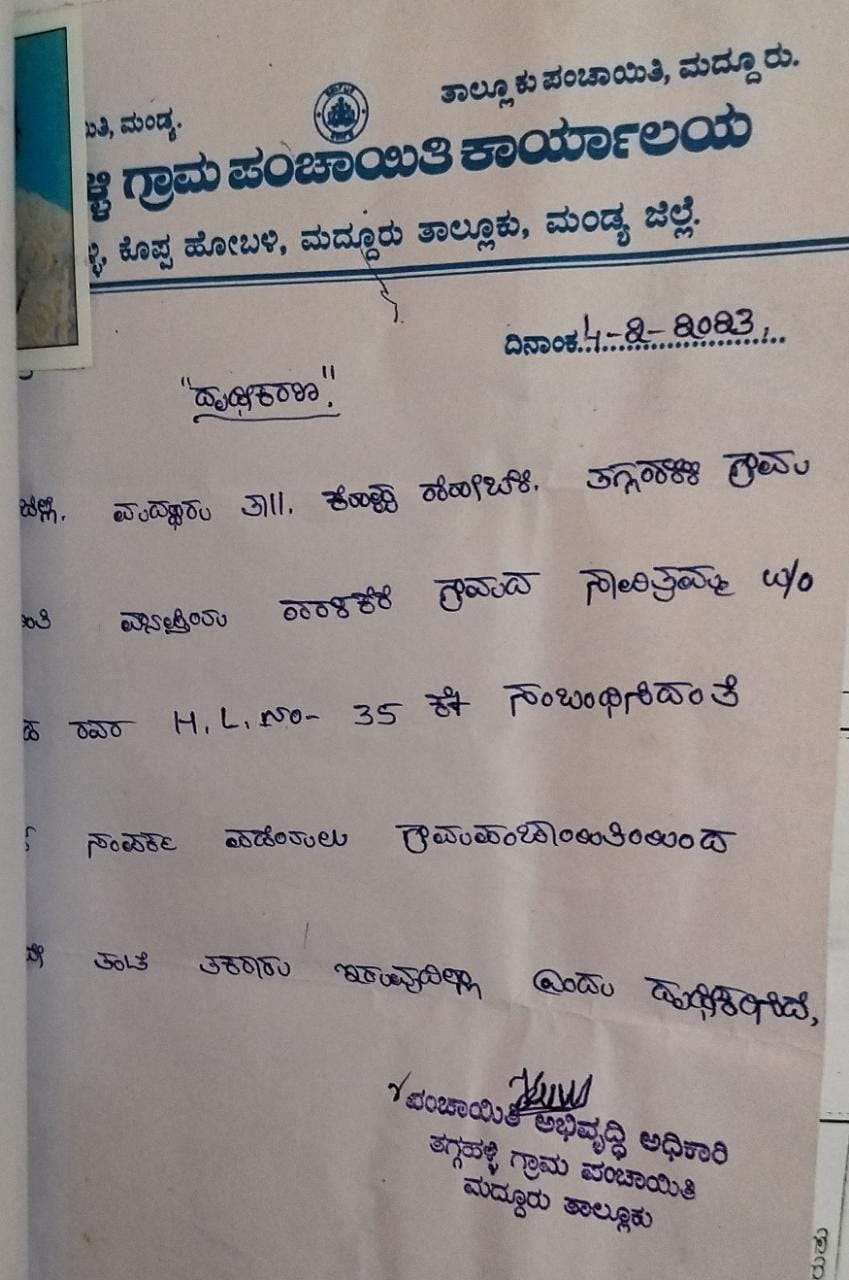 ತಾಲ್ಲೂಕು ಪಂಚಾಯಿತಿ, ಮದ್ದೂರು.
ಯಿತಿ, ಮಂಡ್ಯ.
ಳ್ಳಿ ಗ್ರಾಮ ಪಂಚಾಯಿತಿ ಕಾರ್ಯಾಲಯ
ಳ್ಳಿ, ಕೊಪ್ಪ ಹೋಬಳಿ, ಮದ್ದೂರು ತಾಲ್ಲೂಕು, ಮಂಡ್ಯ ಜಿಲ್ಲೆ.
ದಿನಾಂಕ 4-೨-೨೦೨3,
"ದೃಢೀಕರಣ".
ಜಿಲ್ಲೆ. ಮದ್ದೂರು ತಾ||. ಕೊಪ್ಪ ಹೋಬಳಿ. ತಗ್ಗಹಳ್ಳಿ ಗ್ರಾಮ
ಯತಿ ವ್ಯಾಪ್ತಿಯ ಗ್ರಾಮದ ಸಾವಿತ್ರಮ್ಮ w/o
ರವರ H. L. ನಂ- 35 ಕ್ಕೆ ಸಂಬಂಧಿಸಿದಂತೆ
ಸಂಪರ್ಕ ಪಡೆಯಲು ಗ್ರಾಮಪಂಚಾಯಿತಿಯಿಂದ
ವೇ ತಂಟೆ ತಕರಾರು ಇರುವುದಿಲ್ಲ ಎಂದು ದೃಢೀಕರಿಸಿದೆ,
ಪಂಚಾಯಿತಿ ಅಭಿವೃದ್ಧಿ ಅಧಿಕಾರಿ
ತಗ್ಗಹಳ್ಳಿ ಗ್ರಾಮ ಪಂಚಾಯಿತಿ
ಮದ್ದೂರು ತಾಲ್ಲೂಕು